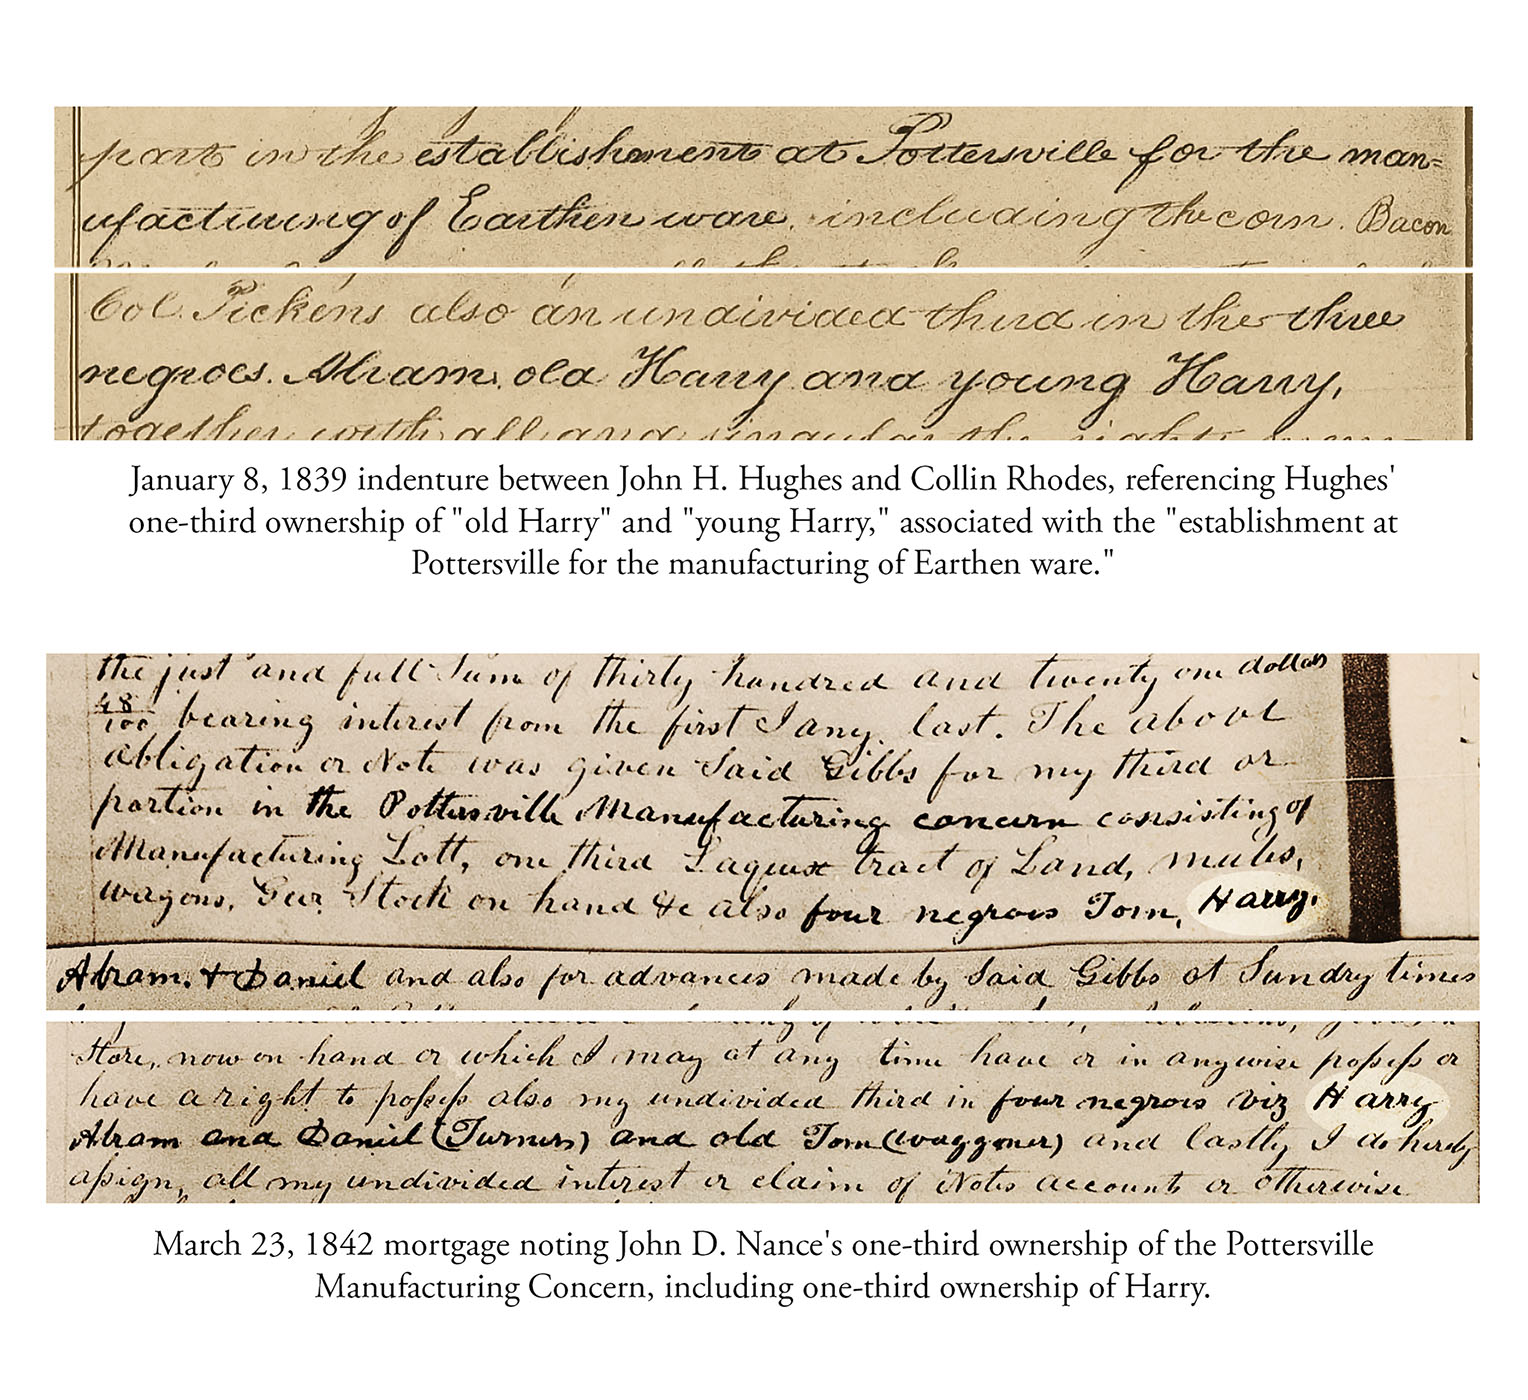 part in the establishment at Pottersville for the man=
ufacturing of Earthen ware. including the corn. Bacon
Col. Pickens also an undivided third in the three
negroes. Abram, old Harry and young Harry,
together with all and singular the rights
January 8, 1839 indenture between John H. Hughes and Collin Rhodes, referencing Hughes'
one-third ownership of "old Harry" and "young Harry," associated with the "establishment at
Pottersville for the manufacturing of Earthen ware."
the just and full Sum of thirty hundred and twenty one dollars
48/100 bearing interest from the first Jany. last. The above
obligation or Note was given Said Gibbs for my third or
portion in the Pottersville Manufacturing concern consisting of
Manufacturing Lott, one third Laquix tract of Land, mules,
wagons, Geer, Stock on hand &c also four negroes Tom, Harry.
Abram. & Daniel and also for advances made by Said Gibbs at Sundry times
Store, now on hand or which I may at any time have or in anywise possess or
have a right to possess also my undivided third in four negroes viz Harry
Abram and Daniel (Turners) and old Tom (waggoner) and lastly I do hereby
assign, all my undivided interest or claim of Notes accounts or otherwise
March 23, 1842 mortgage noting John D. Nance's one-third ownership of the Pottersville
Manufacturing Concern, including one-third ownership of Harry.